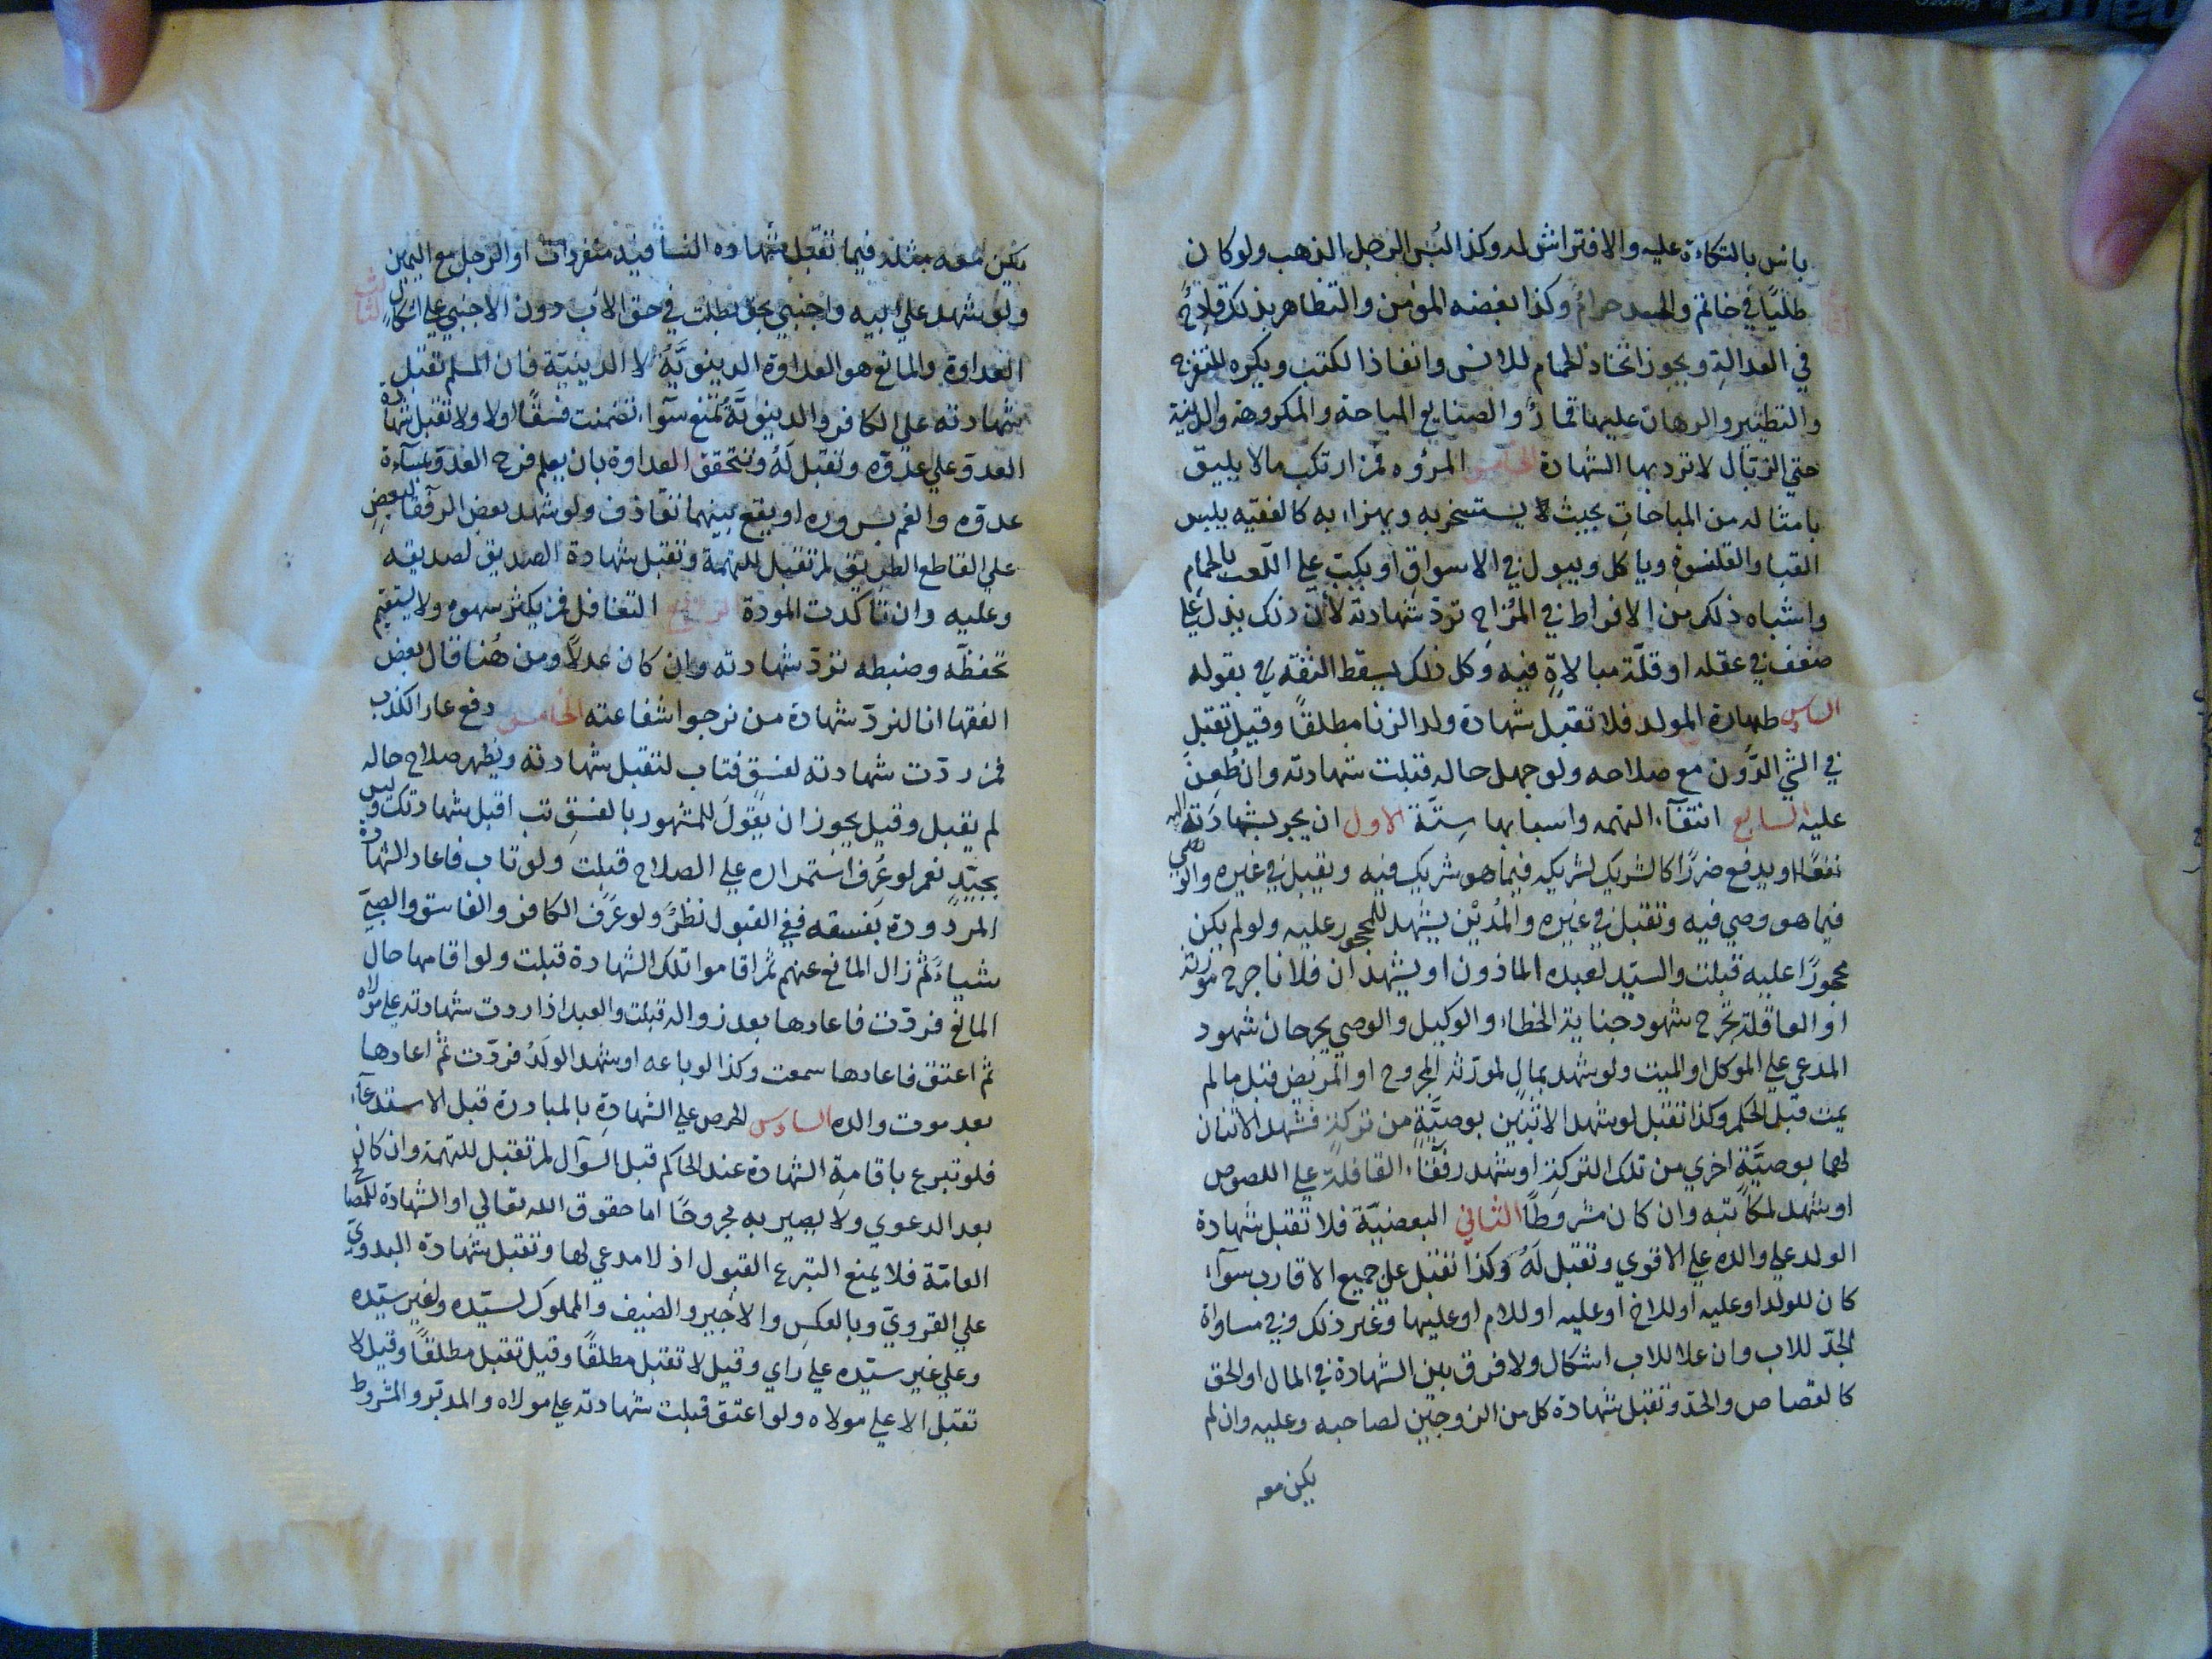 بأس بالتكاءة عليه والافتراش له وكذا لبس الرجل الذهب ولو كان
طليًا في خاتم والحسد حرام وكذا بغضه المؤمن والتظاهر بذلك قادح
في العدالة ويجوز اتخاذ الحمام للانس وانفاذ الكتب ويكره للتفرج
والتطيير والرهان عليها قمار والصنايع المباحة والمكروهة والدنية
حتى الزبال لا ترد بها الشهادة الخامس المروه فمن ارتكب ما لا يليق
بامثاله من المباحات بحيث يستسخر به ويهزاء به كالفقيه يلبس
القبا والقلنسوة وياكل ويبول في الاسواق او يكب على اللعب بالحمام
واشباه ذلك من الافراط في المزاح ترد شهادته لأن ذلك يدل على
ضعف في عقله او قلة مبالاة فيه وكل ذلك يسقط الثقة بقوله
السادس طهارة المولد فلا تقبل شهادة ولد الزنا مطلقًا وقيل تقبل
في الشي الدون مع صلاحه ولو جهل حاله قبلت شهادته وان طعن
عليه السابع انتفآء التهمه واسبابها ستة الاول ان يجر بشهادته اليه
نفعًا او يدفع ضررًا كالشريك لشريكه فيما هو شريك فيه وتقبل في غيره والوصي
فيما هو وصي فيه وتقبل في غيره والمدين يشهد للمحجور عليه ولو لم يكن
محجورًا عليه قبلت والسيد لعبده الماذون او يشهد ان فلانا جرح مورثه
او العاقلة تجرح شهود جناية الخطاء والوكيل والوصي يجرحان شهود
المدعي على الموكل او الميت ولو شهد بمال لمورثه المجروح او المريض قبل ما لم
يمت قبل الحكم وكذا تقبل لو شهد الاثنين بوصية من تركة فشهد الاثنان
لهما بوصية اخرى من تلك التركة او شهد رفقاء القافلة على اللصوص
او شهد لمكاتبه وان كان مشروطًا الثاني البعضية فلا تقبل شهادة
الولد على والده على الاقوي وتقبل له وكذا تقبل على جميع الاقارب سوآء
كان للولد او عليه او للاخ او عليه او للام او عليها وغير ذلك وفي مساواة
الجد للاب وان علا للاب اشكال ولا فرق بين الشهادة في المال او الحق
كالقصاص والحد وتقبل شهادة كل من الزوجين لصاحبه وعليه وان لم
يكن معه
يكن معه مثله فيما تقبل شهاده النسا فيه منفردات او الرجل مع اليمين
ولو شهد على ابيه واجنبي بحق بطلت في حق الاب دون الاجنبي على اشكال الثالث
العداوة والمانع هو العداوة الدنيوية لا الدينية فان المسلم تقبل
شهادته على الكافر والدنيوية تمنع سوآء تضمنت فسقًا اولا ولا تقبل شهادة
العدو على عدوه وتقبل له وتتحقق العداوة بان يعلم فرح العدو بمساءة
عدوه والغم بسروره او يقع بينهما تقاذف ولو شهد بعض الرفقا لبعض
على القاطع الطريق لم تقبل للتهمة وتقبل شهادة الصديق لصديقه
وعليه وان تاكدت المودة الرابع التغافل فمن يكثر سهوه ولا يستقيم
تحفظه وضبطه ترد شهادته وان كان عدلًا ومن هنا قال بعض
الفقها انا لنرد شهادة من نرجوا شفاعته الخامس دفع عار الكذب
فمن ردت شهادته لفسق فتاب لتقبل شهادته ويظهر صلاح حاله
لم يقبل وقيل يجوز ان يقول للمشهور بالفسق تب اقبل شهادتك وليس
بجيد نعم لو عرف استمراره على الصلاح قبلت ولو تاب فاعاد الشهادة
المردودة بفسقه ففي القبول نظر ولو عرف الكافر والفاسق والصبي
شياء ثم زال المانع عنهم ثم اقاموا تلك الشهادة قبلت ولو اقامها حال
المانع فردت فاعادها بعد زواله قبلت والعبد اذا ردت شهادته على مولاه
ثم اعتق فاعادها سمعت وكذا لو باعه او شهد الولد فردت ثم اعادها
بعد موت والده السادس الحرص على الشهادة بالمبادرة قبل الاستدعآء
فلو تبرع باقامة الشهادة عند الحاكم قبل السوآل لم تقبل للتهمة وان كان
بعد الدعوي ولا يصير به مجروحًا اما حقوق الله تعالي او الشهادة للمصالح
العامة فلا يمنع التبرع القبول اذ لا مدعي لها وتقبل شهادة البدوي
على القروي وبالعكس والاجير والضيف والمملوك لسيده ولغير سيده
وعلى غير سيده على راي وقيل لا تقبل مطلقًا وقيل تقبل مطلقًا وقيل لا
تقبل الا على مولاه ولو اعتق قبلت شهادته على مولاه والمدبر والمشروط